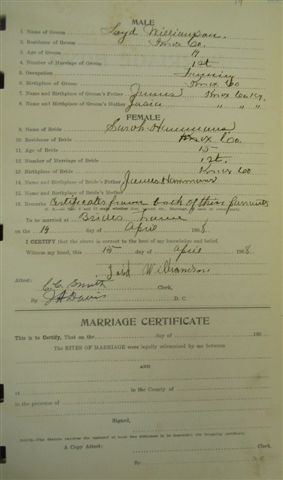 MALE
1. Name of Groom Loyd Williamson
2. Residence of Groom Knox Co.
3. Age of Groom 19
4. Number of Marriage of Groom 1st
5. Occupation
6. Birthplace of Groom Knox Co
7. Name and Birthplace of Groom's Father Junius Knox Co Ky
8. Name and Birthplace of Groom's Mother " " "
FEMALE
9. Name of Bride Sarah Hammons
10. Residence of Bride Knox Co.
11. Age of Bride 15
12. Number of Marriage of Bride 1st
13. Birthplace of Bride Knox Co
14. Name and Birthplace of Bride's Father James Hammons
15. Name and Birthplace of Bride's Mother
16. Remarks Certificates from both of their parents
To be married at Brides home
on the 19 day of April 1908
I CERTIFY that the above is correct to the best of my knowledge and belief.
Witness my hand, this 15 day of April 1908
Williamson
Attest:
C.C. Smith Clerk,
By Davis D. C.
MARRIAGE CERTIFICATE
This is to Certify, That on the day of 190
The RITES OF MARRIAGE were legally solemnized by me between
AND
at in the County of
in the presence of
Signed,
A Copy Attest: Clerk.
By D. C.